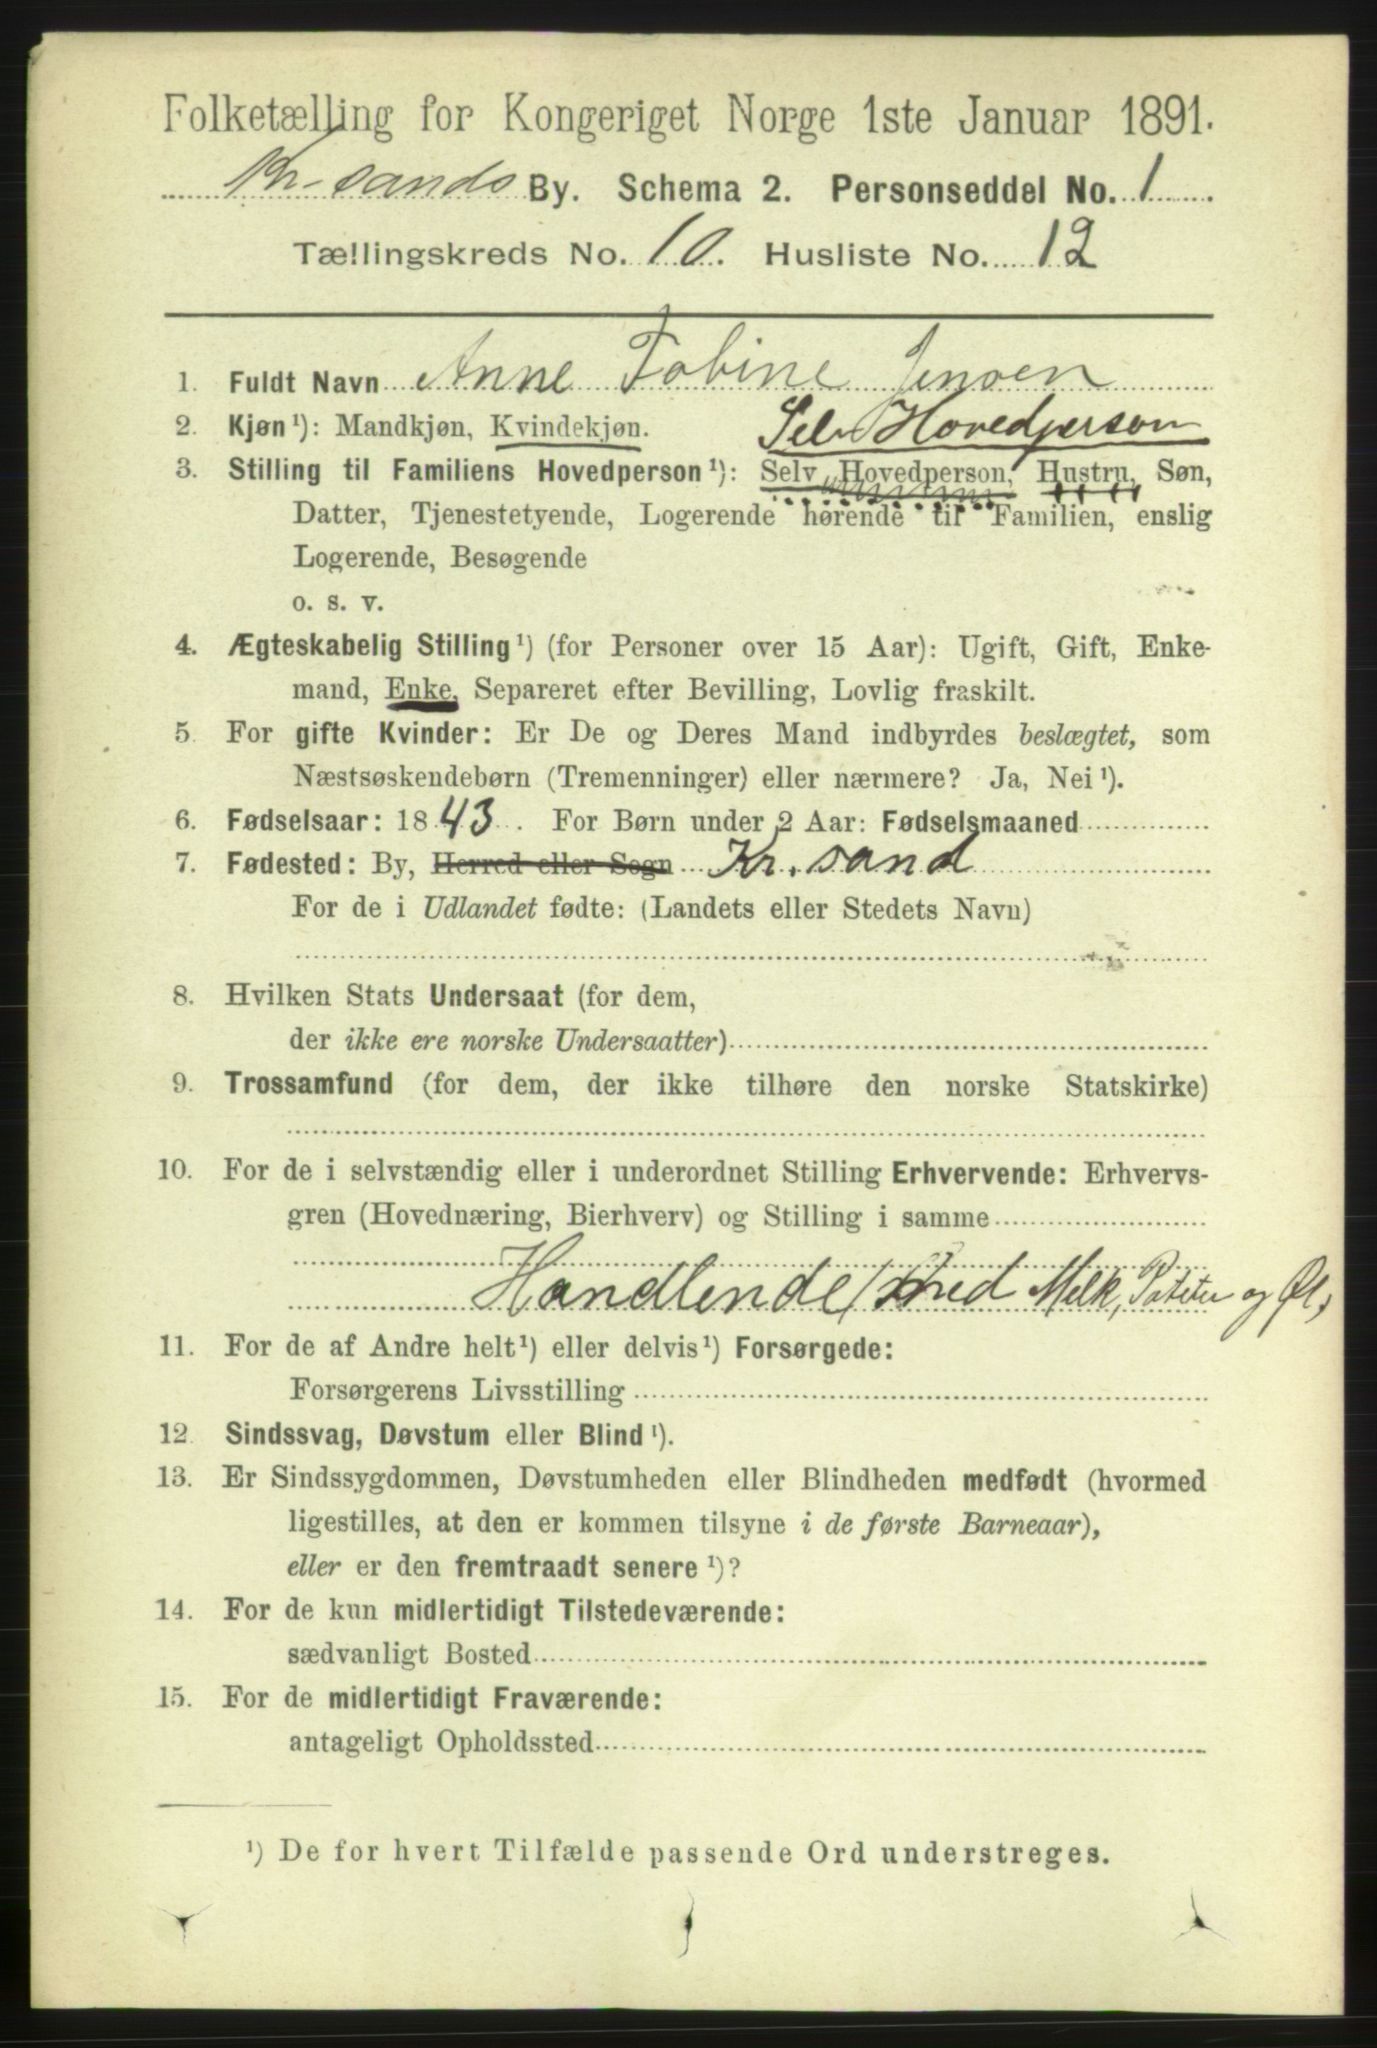 Folketælling for Kongeriget Norge 1ste Januar 1891.
Kr-sands By. Schema 2. Personseddel No. 1
Tællingskreds No. 10. Husliste No. 12
1. Fuldt Navn Anne Tobine Jensen
2. Kjøn¹): Mandkjøn, Kvindekjøn. Selv Hovedperson
3. Stilling til Familiens Hovedperson¹): Selv Hovedperson, Hustru, Søn,
Datter, Tjenestetyende, Logerende hørende til Familien, enslig
Logerende, Besøgende
o. s. v.
4. Ægteskabelig Stilling¹) (for Personer over 15 Aar): Ugift, Gift, Enke-
mand, Enke, Separeret efter Bevilling, Lovlig fraskilt.
5. For gifte Kvinder: Er De og Deres Mand indbyrdes beslægtet, som
Næstsøskendebørn (Tremenninger) eller nærmere? Ja, Nei¹).
6. Fødselsaar: 1843. For Børn under 2 Aar: Fødselsmaaned
7. Fødested: By, Herred eller Sogn Kr. sand
For de i Udlandet fødte: (Landets eller Stedets Navn)
8. Hvilken Stats Undersaat (for dem,
der ikke ere norske Undersaatter)
9. Trossamfund (for dem, der ikke tilhøre den norske Statskirke)
10. For de i selvstændig eller i underordnet Stilling Erhvervende: Erhvervs-
gren (Hovednæring, Bierhverv) og Stilling i samme
Handlende med Melk, Poteter og Øl,
11. For de af Andre helt¹) eller delvis¹) Forsørgede:
Forsørgerens Livsstilling
12. Sindssvag, Døvstum eller Blind¹).
13. Er Sindssygdommen, Døvstumheden eller Blindheden medfødt (hvormed
ligestilles, at den er kommen tilsyne i de første Barneaar),
eller er den fremtraadt senere¹)?
14. For de kun midlertidigt Tilstedeværende:
sædvanligt Bosted
15. For de midlertidigt Fraværende:
antageligt Opholdssted
¹) De for hvert Tilfælde passende Ord understreges.